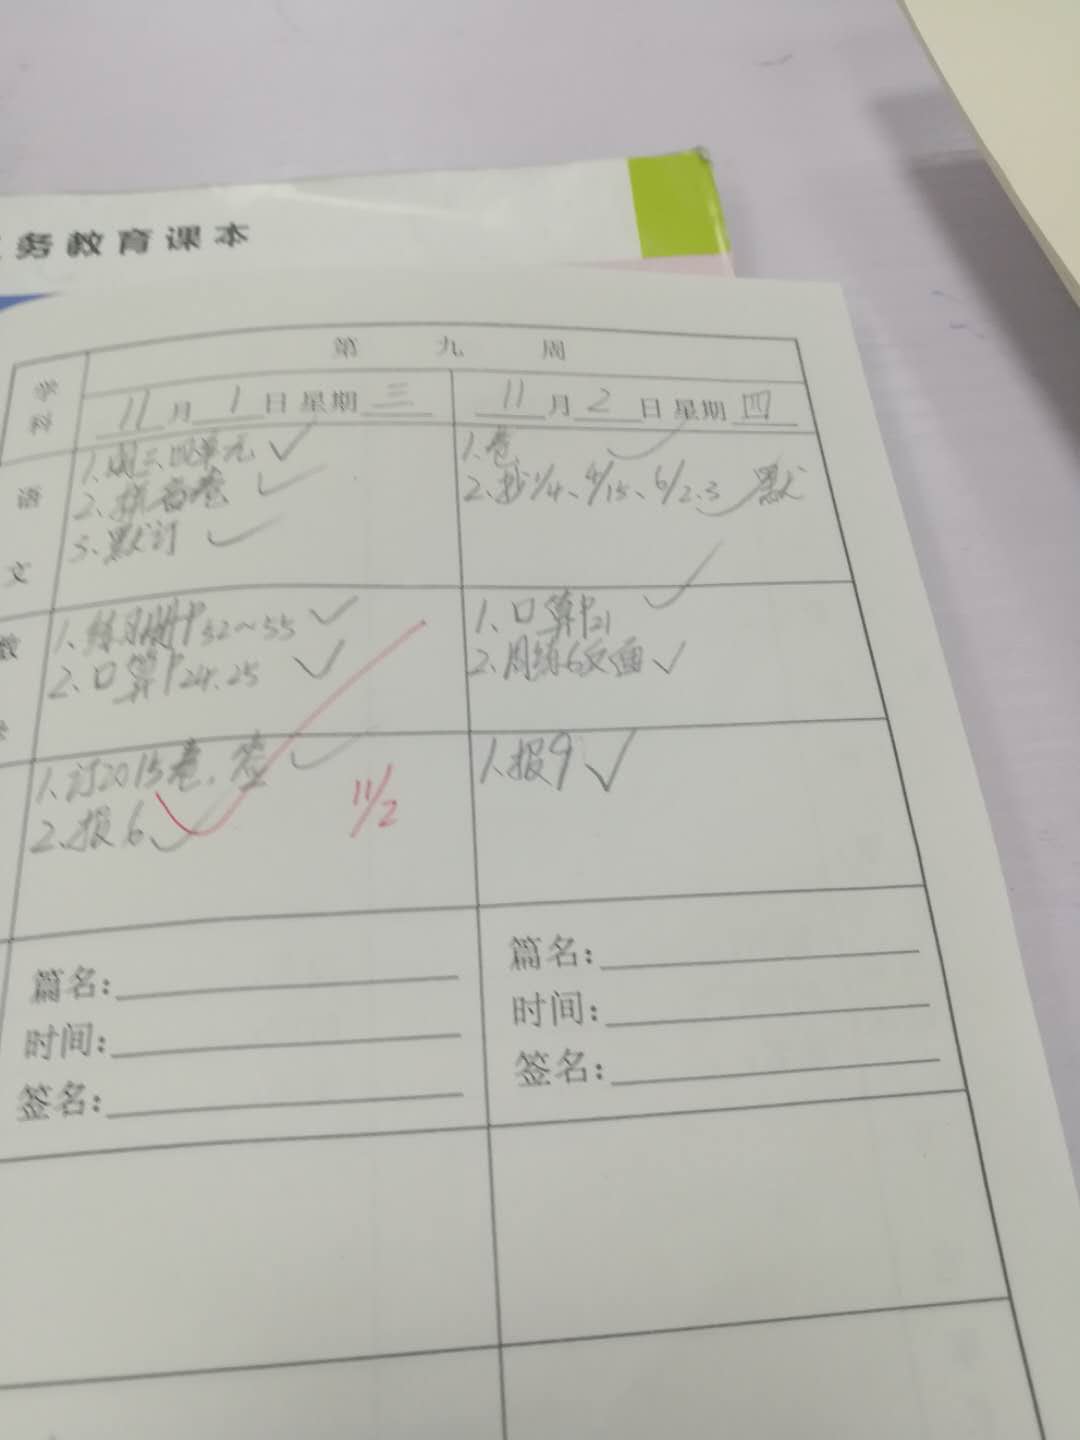 务教育课本
第 九 周
学科
11月1日 星期三
11月2日 星期四
语文
1.周三、四单元
2.卷
3.默订
1.卷
2.抄1/4、4/15、6/2、3 默
数
1.练习册P52~55
2.口算P24.25
1.口算P21
2.周练6反面
1.订2015卷,签
2.报6
11/2
1.报9
篇名:
时间:
签名:
篇名:
时间:
签名: